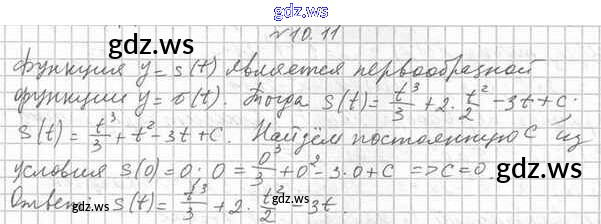 gdz.ws
№10.11
gdz.ws
функция y = s(t) является первообразной
функции y = v(t). Тогда s(t) = t³/3 + 2·t²/2 − 3t + C.
s(t) = t³/3 + t² − 3t + C. Найдём постоянную C из
условия s(0) = 0; 0 = 0³/3 + 0² − 3·0 + C => C = 0
gdz.ws gdz.ws
Ответ: s(t) = t³/3 + 2·t²/2 − 3t.
gdz.ws